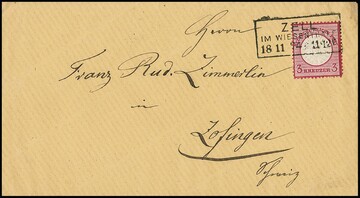 Herrn
ZELL
IM WIESENTH
18 11
11-12
3 KREUZER 3
Franz Rud. Zimmerlin
in
Zofingen
Schweiz